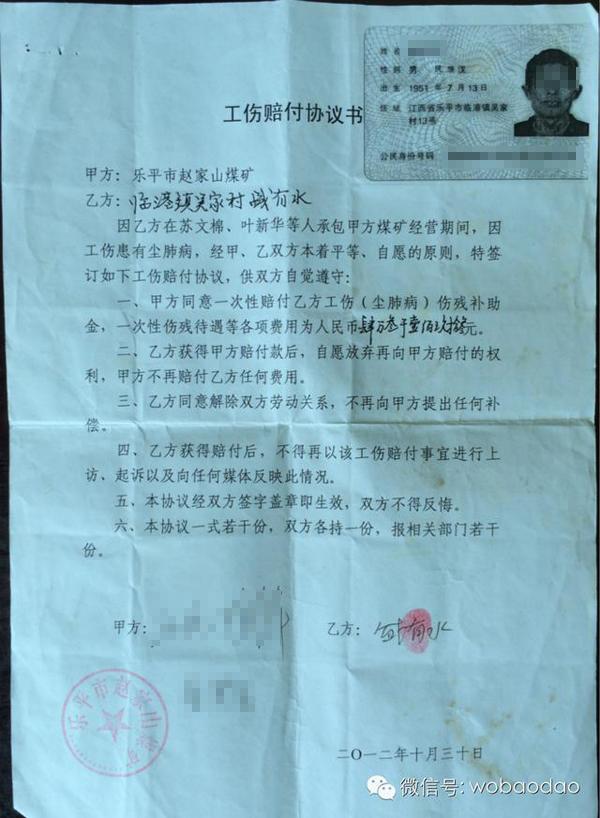 姓名
性别 男 民族 汉
出生 1951年7月13日
住址 江西省乐平市临港镇吴家
村13号
公民身份号码
工伤赔付协议书
甲方：乐平市赵家山煤矿
乙方：临港镇吴家村 有水
因乙方在苏文棉、叶新华等人承包甲方煤矿经营期间，因
工伤患有尘肺病，经甲、乙双方本着平等、自愿的原则，特签
订如下工伤赔付协议，供双方自觉遵守：
一、甲方同意一次性赔付乙方工伤（尘肺病）伤残补助
金，一次性伤残待遇等各项费用为人民币肆万叁千壹佰玖拾元。
二、乙方获得甲方赔付款后，自愿放弃再向甲方赔付的权
利，甲方不再赔付乙方任何费用。
三、乙方同意解除双方劳动关系，不再向甲方提出任何补
偿。
四、乙方获得赔付后，不得再以该工伤赔付事宜进行上
访、起诉以及向任何媒体反映此情况。
五、本协议经双方签字盖章即生效，双方不得反悔。
六、本协议一式若干份，双方各持一份，报相关部门若干
份。
甲方：
乙方： 有水
乐平市赵家山煤矿
二〇一二年十月三十日
微信号: wobaodao